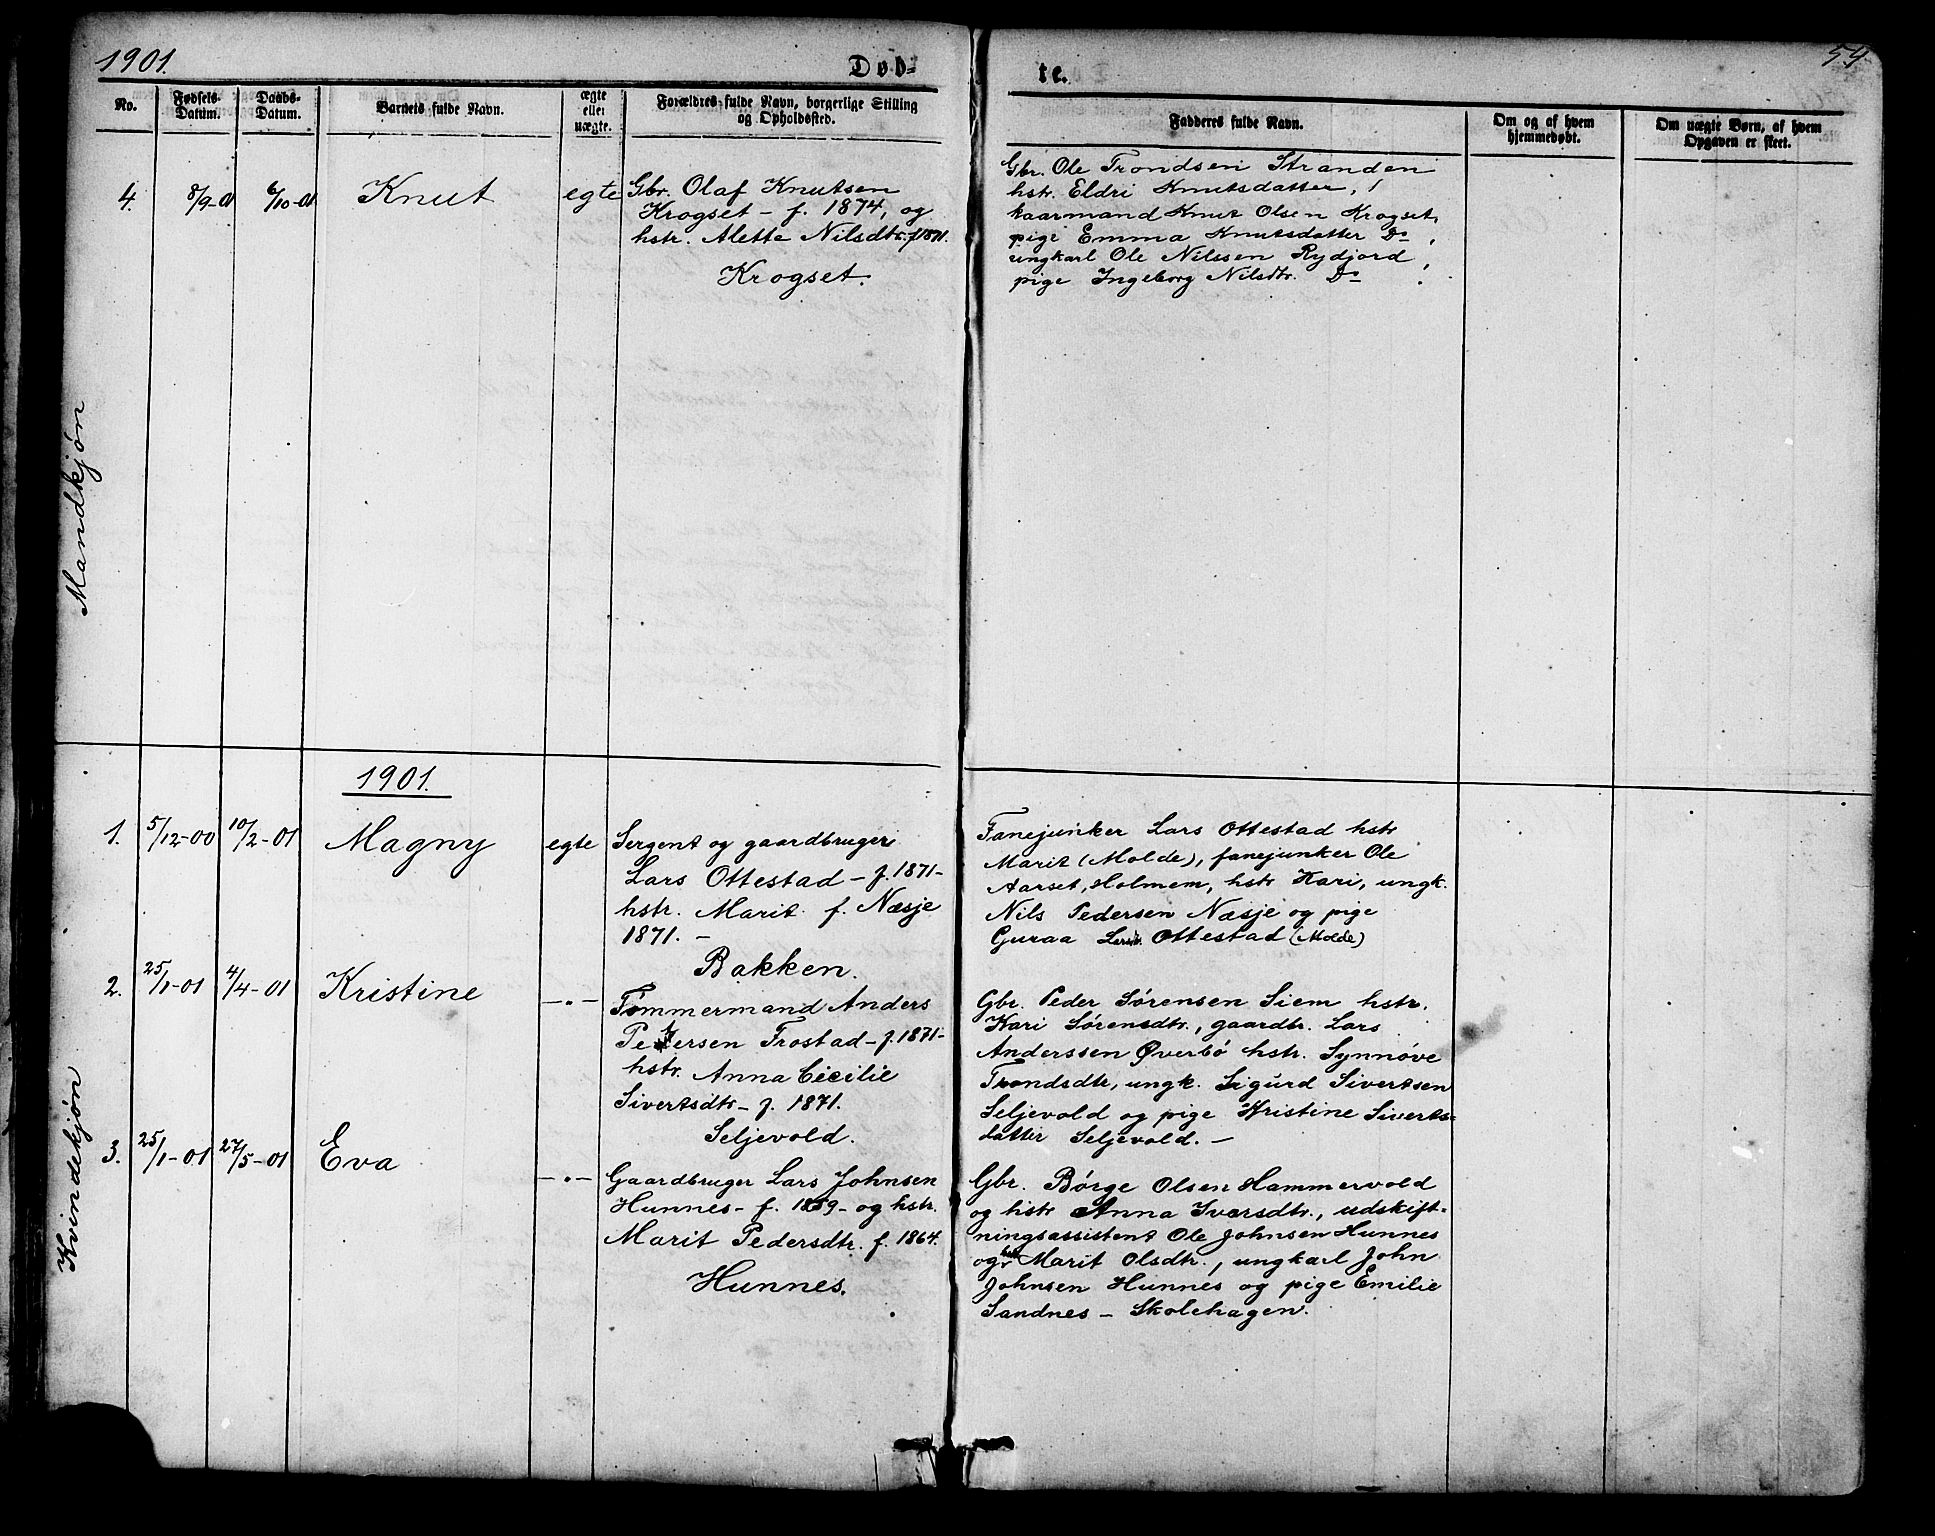 1901.
Døb=
te.
54.
No.
Fødsels-
Datum.
Daabs-
Datum.
Barnets fulde Navn.
ægte
eller
uægte.
Forældres fulde Navn, borgerlige Stilling
og Opholdssted.
Fadderes fulde Navn.
Om og af hvem
hjemmedøbt.
Om uægte Børn, af hvem
Opgaven er skeet.
Mandkjøn
4.
8/9-01
6/10-01
Knut
egte
Gbr. Olaf Knutsen
Krogset - f. 1874, og
hstr. Alette Nilsdtr. f 1871.
Krogset.
Gbr. Ole Trondsen Stranden
hstr. Eldri Knutsdatter,
kaarmand Knut Olsen Krogset,
pige Emma Knutsdatter Do,
ungkarl Ole Nilssen Rydjord,
pige Ingeborg Nilsdtr. Do.
Kvindekjøn
1901.
1.
5/12-00
10/2-01
Magny
egte
Sergent og gaardbruger
Lars Ottestad - f. 1871-
hstr. Marit f. Næsje
1871. -
Bakken.
Fanejunker Lars Ottestad hstr
Marit (Molde), fanejunker Ole
Aarset, Holmem, hstr Kari, ungk.
Nils Pedersen Næsje og pige
Guraa Ottestad (Molde)
2.
25/1-01
4/4-01
Kristine
-"-
Tømmermand Anders
Petersen Frostad - f. 1871-
hstr. Anna Cecilie
Sivertsdtr - f. 1871.
Seljevold.
Gbr. Peder Sørensen Siem hstr.
Kari Sørensdtr., gaardbr. Lars
Anderssen Øverbø hstr. Synnøve
Trondsdtr, ungk. Sigurd Sivertsen
Seljevold og pige Kristine Siverts=
datter Seljevold. -
3.
25/1-01
27/5-01
Eva
-"-
Gaardbruger Lars Johnsen
Hunnes - f. 1859 - og hstr.
Marit Pedersdtr. f. 1864.
Hunnes.
Gbr. Børge Olsen Hammervold
og hstr Anna Iversdtr., udskift=
ningsassistent Ole Johnsen Hunnes
og hstr Marit Olsdtr., ungkarl John
Johnsen Hunnes og pige Emilie
Sandnes - Skolehagen.